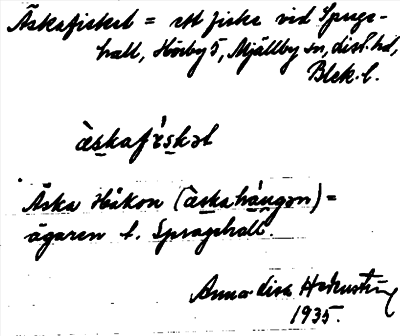 Äskafisket = ett fiske vid Sprage-
hall, Hörby 5, Mjällby sn, Lists hd,
Blek. l.
àskafiskət
Äska Håkon (àskahångən) =
ägaren t. Spragehall.
Anna-Lisa
1935.